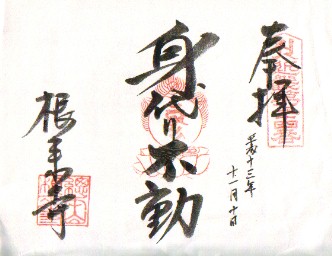 奉拝
平成十三年
十一月十日
身代り不動
根来寺